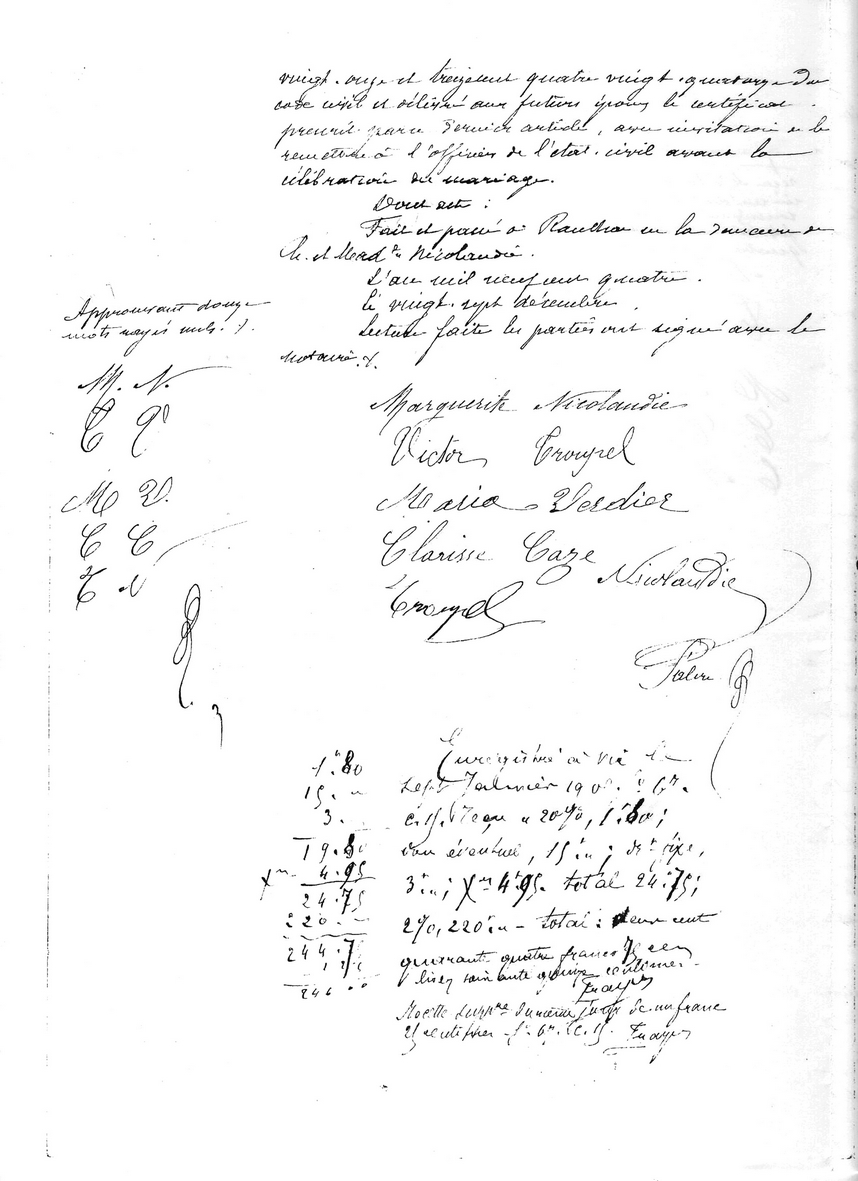 vingt-onze et treize cent quatre vingt-quatorze du
code civil et délivré aux futurs époux le certificat
prescrit par ce dernier article, avec invitation de le
remettre à l'officier de l'état-civil avant la
célébration du mariage.
Dont acte :
Fait et passé à en la demeure de
M. et Mad.e Nicolaudie.
L'an mil neuf cent quatre.
Le vingt-sept décembre.
Lecture faite les parties ont signé avec le
notaire.
Approuvant douze
mots rayés nuls.
M. N.
M V.
C C
T N
Marguerite Nicolaudie
Victor Troupel
Maria Verdier
Clarisse Caze
Nicolaudie
Troupel
1.80
15. "
3. "
19.80
4.95
24.75
220. "
244.75
Enregistré à le
sept Janvier 190
20%, 1.80;
don éventuel, 15 "; dt fixe,
3 "; 4.95. total 24.75;
2%, 220 " - total : deux cent
quarante quatre francs
lisez soixante quinze centimes.
de un franc